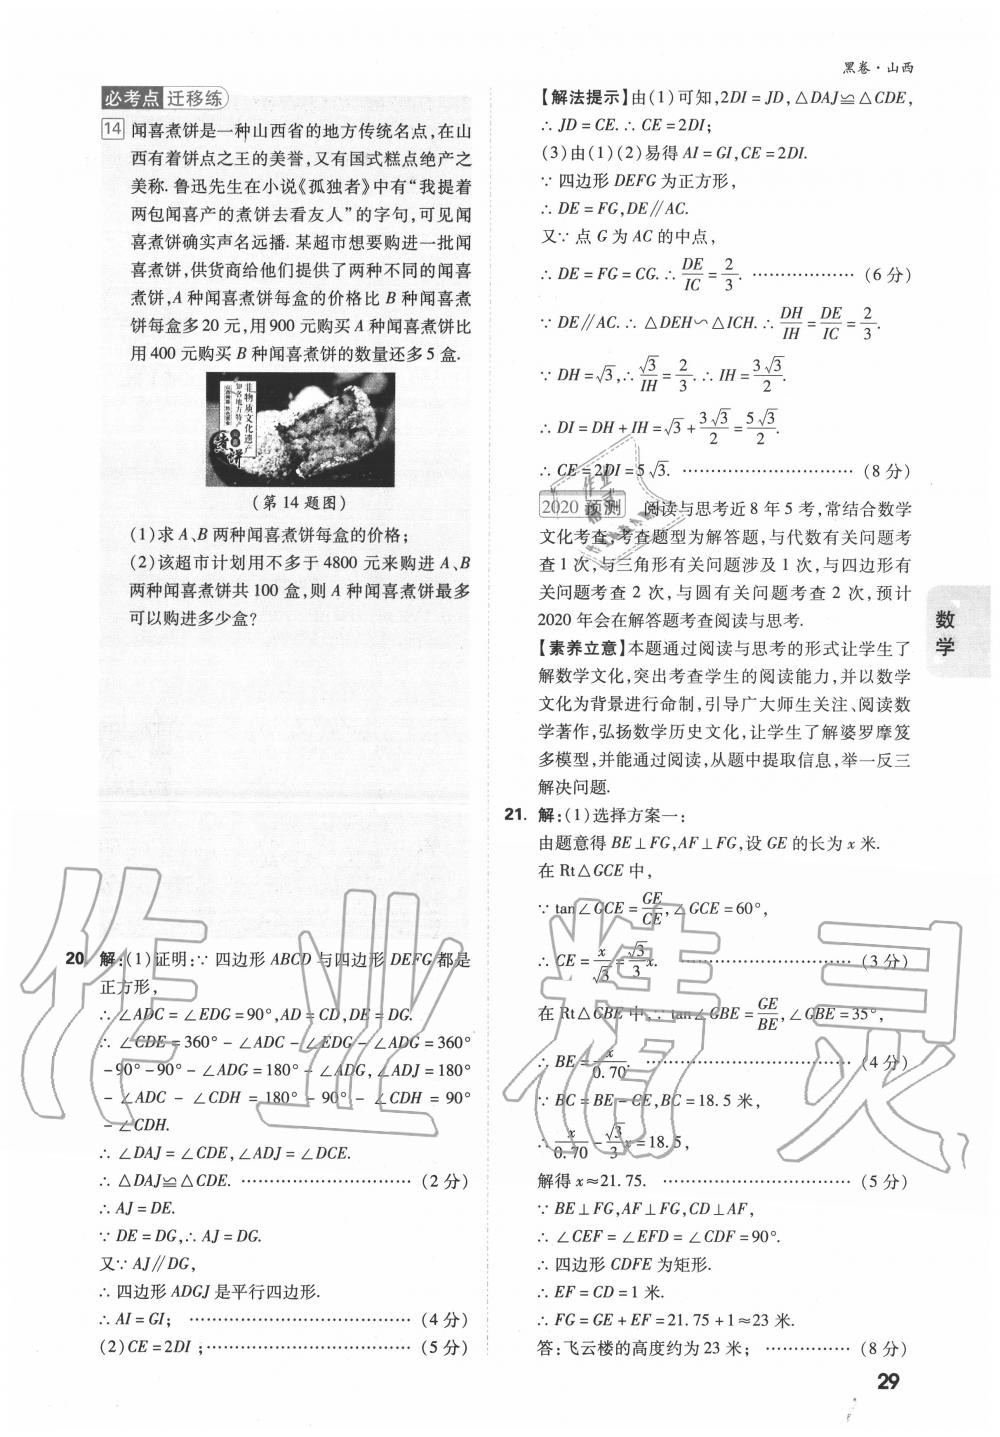 黑卷·山西
必考点 迁移练
14 闻喜煮饼是一种山西省的地方传统名点,在山
西有着饼点之王的美誉,又有国式糕点绝产之
美称.鲁迅先生在小说《孤独者》中有“我提着
两包闻喜产的煮饼去看友人”的字句,可见闻
喜煮饼确实声名远播.某超市想要购进一批闻
喜煮饼,供货商给他们提供了两种不同的闻喜
煮饼,A种闻喜煮饼每盒的价格比B种闻喜煮
饼每盒多20元,用900元购买A种闻喜煮饼比
用400元购买B种闻喜煮饼的数量还多5盒.
非物质文化遗产
知名地方特产
煮饼
(第14题图)
(1)求A、B两种闻喜煮饼每盒的价格;
(2)该超市计划用不多于4800元来购进A、B
两种闻喜煮饼共100盒,则A种闻喜煮饼最多
可以购进多少盒?
20. 解:(1)证明:∵四边形ABCD与四边形DEFG都是
正方形,
∴∠ADC=∠EDG=90°,AD=CD,DE=DG.
∴∠CDE=360°-∠ADC-∠EDG-∠ADG=360°
-90°-90°-∠ADG=180°-∠ADG,∠ADJ=180°
-∠ADC-∠CDH=180°-90°-∠CDH=90°
-∠CDH.
∴∠DAJ=∠CDE,∠ADJ=∠DCE.
∴△DAJ≌△CDE. …………………………(2分)
∴AJ=DE.
∵DE=DG,∴AJ=DG.
又∵AJ∥DG,
∴四边形ADGJ是平行四边形.
∴AI=GI; …………………………………(4分)
(2)CE=2DI;………………………………(5分)
【解法提示】由(1)可知,2DI=JD,△DAJ≌△CDE,
∴JD=CE.∴CE=2DI;
(3)由(1)(2)易得AI=GI,CE=2DI.
∵四边形DEFG为正方形,
∴DE=FG,DE∥AC.
又∵点G为AC的中点,
∴DE=FG=CG.∴DE/IC=2/3. ………………(6分)
∵DE∥AC.∴△DEH∽△ICH.∴DH/IH=DE/IC=2/3.
∵DH=√3,∴√3/IH=2/3.∴IH=3√3/2.
∴DI=DH+IH=√3+3√3/2=5√3/2.
∴CE=2DI=5√3. …………………………(8分)
2020 预测 阅读与思考近8年5考,常结合数学
文化考查,考查题型为解答题,与代数有关问题考
查1次,与三角形有关问题涉及1次,与四边形有
关问题考查2次,与圆有关问题考查2次,预计
2020年会在解答题考查阅读与思考.
【素养立意】本题通过阅读与思考的形式让学生了
解数学文化,突出考查学生的阅读能力,并以数学
文化为背景进行命制,引导广大师生关注、阅读数
学著作,弘扬数学历史文化,让学生了解婆罗摩笈
多模型,并能通过阅读,从题中提取信息,举一反三
解决问题.
21. 解:(1)选择方案一:
由题意得BE⊥FG,AF⊥FG,设GE的长为x米.
在Rt△GCE中,
∵tan∠GCE=GE/CE,∠GCE=60°,
∴CE=x/√3=√3/3x. …………………………(3分)
在Rt△GBE中,∵tan∠GBE=GE/BE,∠GBE=35°,
∴BE=x/0.70. ………………………………(4分)
∵BC=BE-CE,BC=18.5米,
∴x/0.70-√3/3x=18.5,
解得x≈21.75. ……………………………(5分)
∵BE⊥FG,AF⊥FG,CD⊥AF,
∴∠CEF=∠EFD=∠CDF=90°.
∴四边形CDFE为矩形.
∴EF=CD=1米.
∴FG=GE+EF=21.75+1≈23米.
答:飞云楼的高度约为23米; ……………(8分)
数学
29
作业精灵